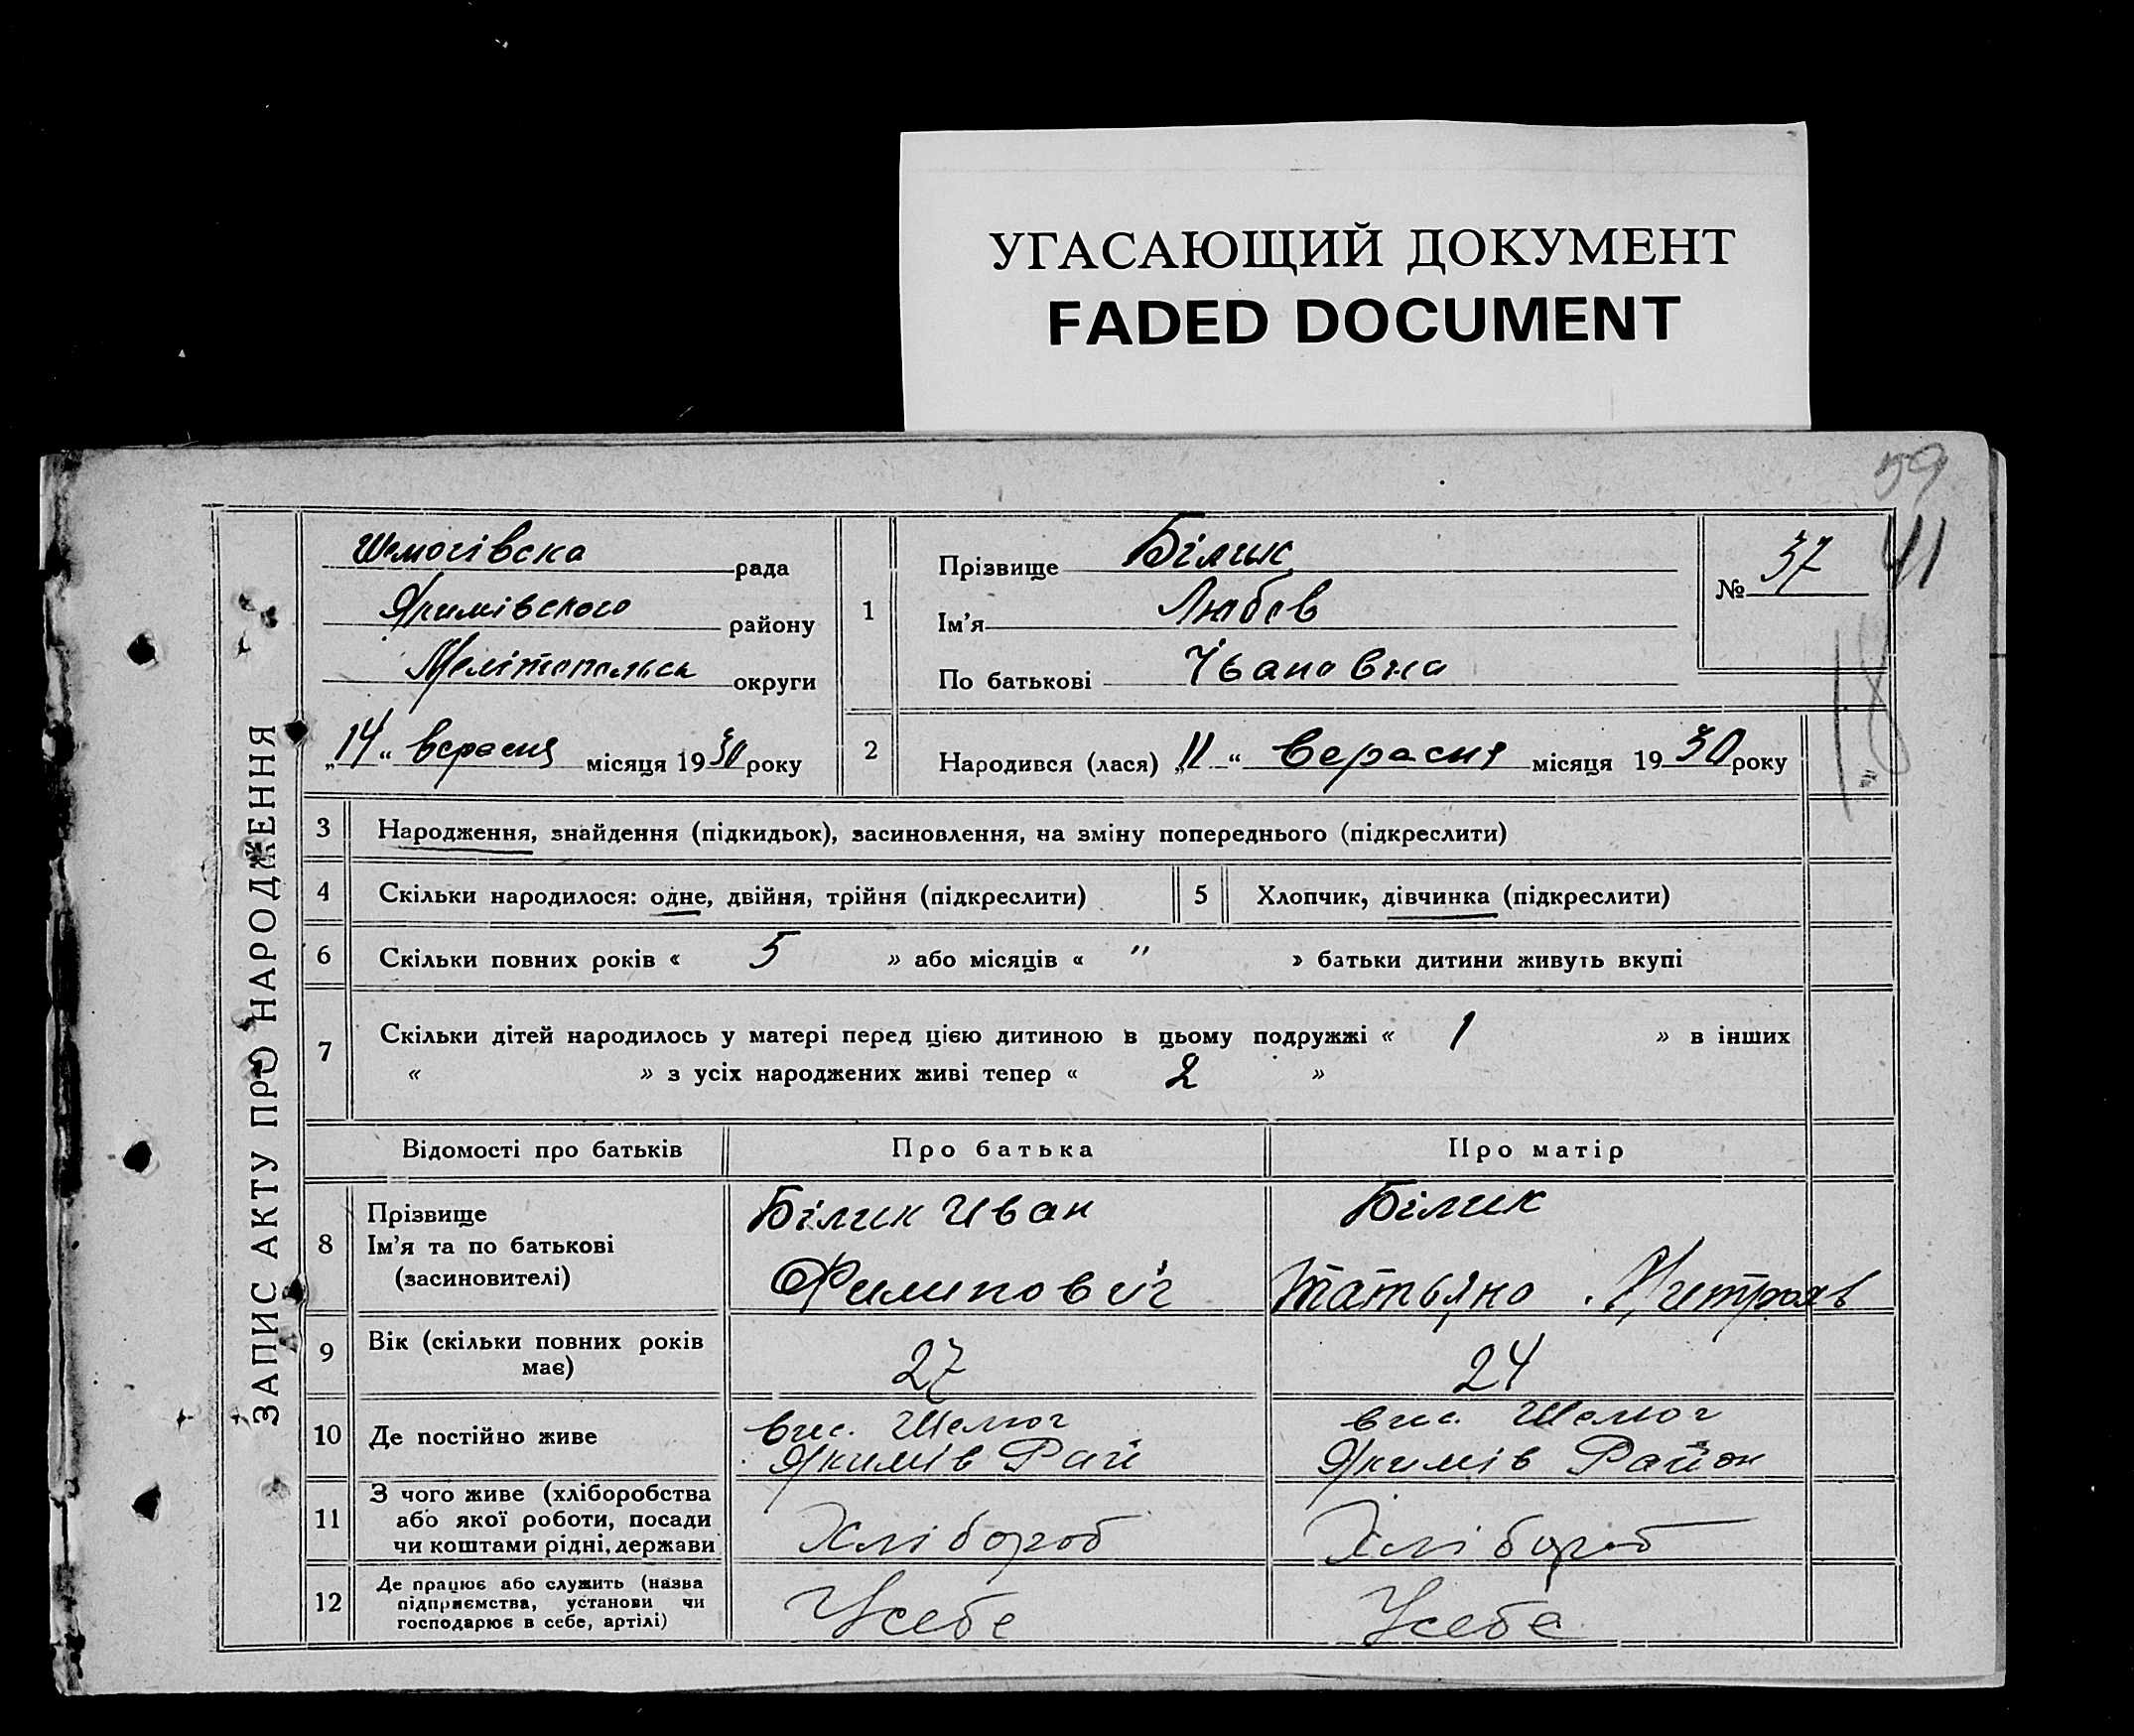 УГАСАЮЩИЙ ДОКУМЕНТ
FADED DOCUMENT
59
41
18
ЗАПИС АКТУ ПРО НАРОДЖЕННЯ
Шемогівска рада
Якимівского району
Мелітопольськ округи
„14“ вересня місяця 1930 року
1
Прізвище Білик
Ім'я Любов
По батькові Івановна
№ 37
2 Народився (лася) „11“ Вересня місяця 1930 року
3 Народження, знайдення (підкидьок), засиновлення, на зміну попереднього (підкреслити)
4 Скільки народилося: одне, двійня, трійня (підкреслити)
5 Хлопчик, дівчинка (підкреслити)
6 Скільки повних років « 5 » або місяців « " » батьки дитини живуть вкупі
7 Скільки дітей народилось у матері перед цією дитиною в цьому подружжі « 1 » в інших
« » з усіх народжених живі тепер « 2 »
Відомості про батьків Про батька Про матір
8 Прізвище
Ім'я та по батькові
(засиновителі)
Білик Иван
Филипович
Білик
Татьяна
9 Вік (скільки повних років
має)
27
24
10 Де постійно живе
вис. Шелюг
Якимів Рай
вис. Шелюг
Якимів Район
11 З чого живе (хліборобства
або якої роботи, посади
чи коштами рідні, держави
Хлібороб
Хлібороб
12 Де працює або служить (назва
підприємства, установи чи
господарює в себе, артілі)
Усебе
Усебе